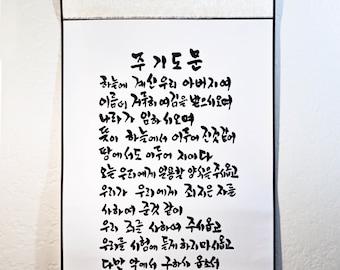 주기도문
하늘에 계신 우리 아버지여
이름이 거룩히 여김을 받으시오며
나라가 임하시오며
뜻이 하늘에서 이루어진것 같이
땅에서도 이루어 지이다
오늘 우리에게 일용할 양식을 주시옵고
우리가 우리에게 죄지은 자를
사하여 준것 같이
우리 죄를 사하여 주시옵고
우리를 시험에 들게 하지 마시옵고
다만 악에서 구하시옵소서